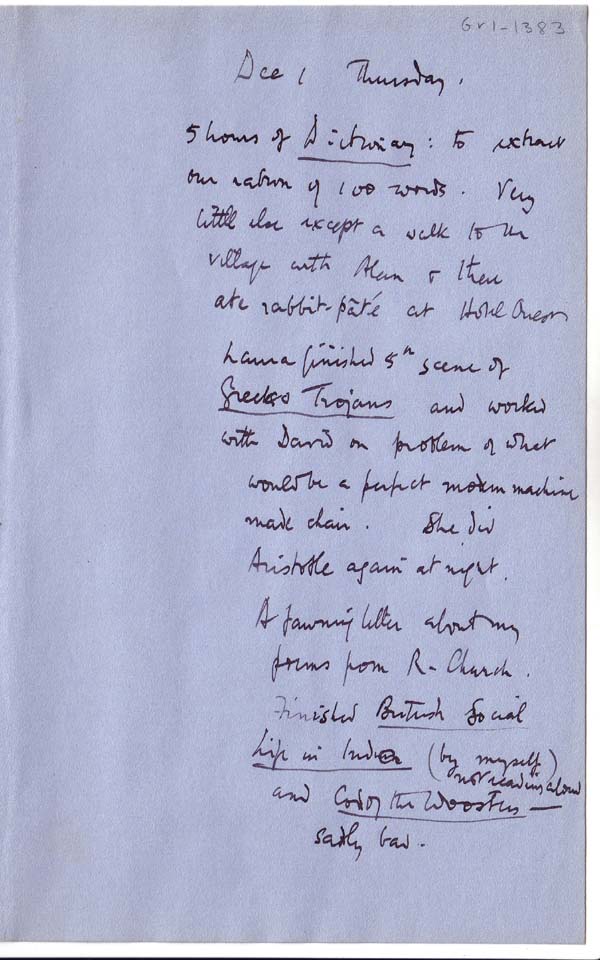 GV1-1383
Dec 1 Thursday.
5 hours of Dictionary: to extract
our ration of 100 words. Very
little else except a walk to the
village with Alan & there
ate rabbit-pâté at Hotel Ouest
Laura finished 5th scene of
Greeks & Trojans and worked
with David on problem of what
would be a perfect modern machine
made chair. She did
Aristotle again at night.
A fawning letter about my
poems from R- Church.
Finished British Social
Life in India (by myself)
not reading aloud
and Code of the Woosters —
sadly bad.